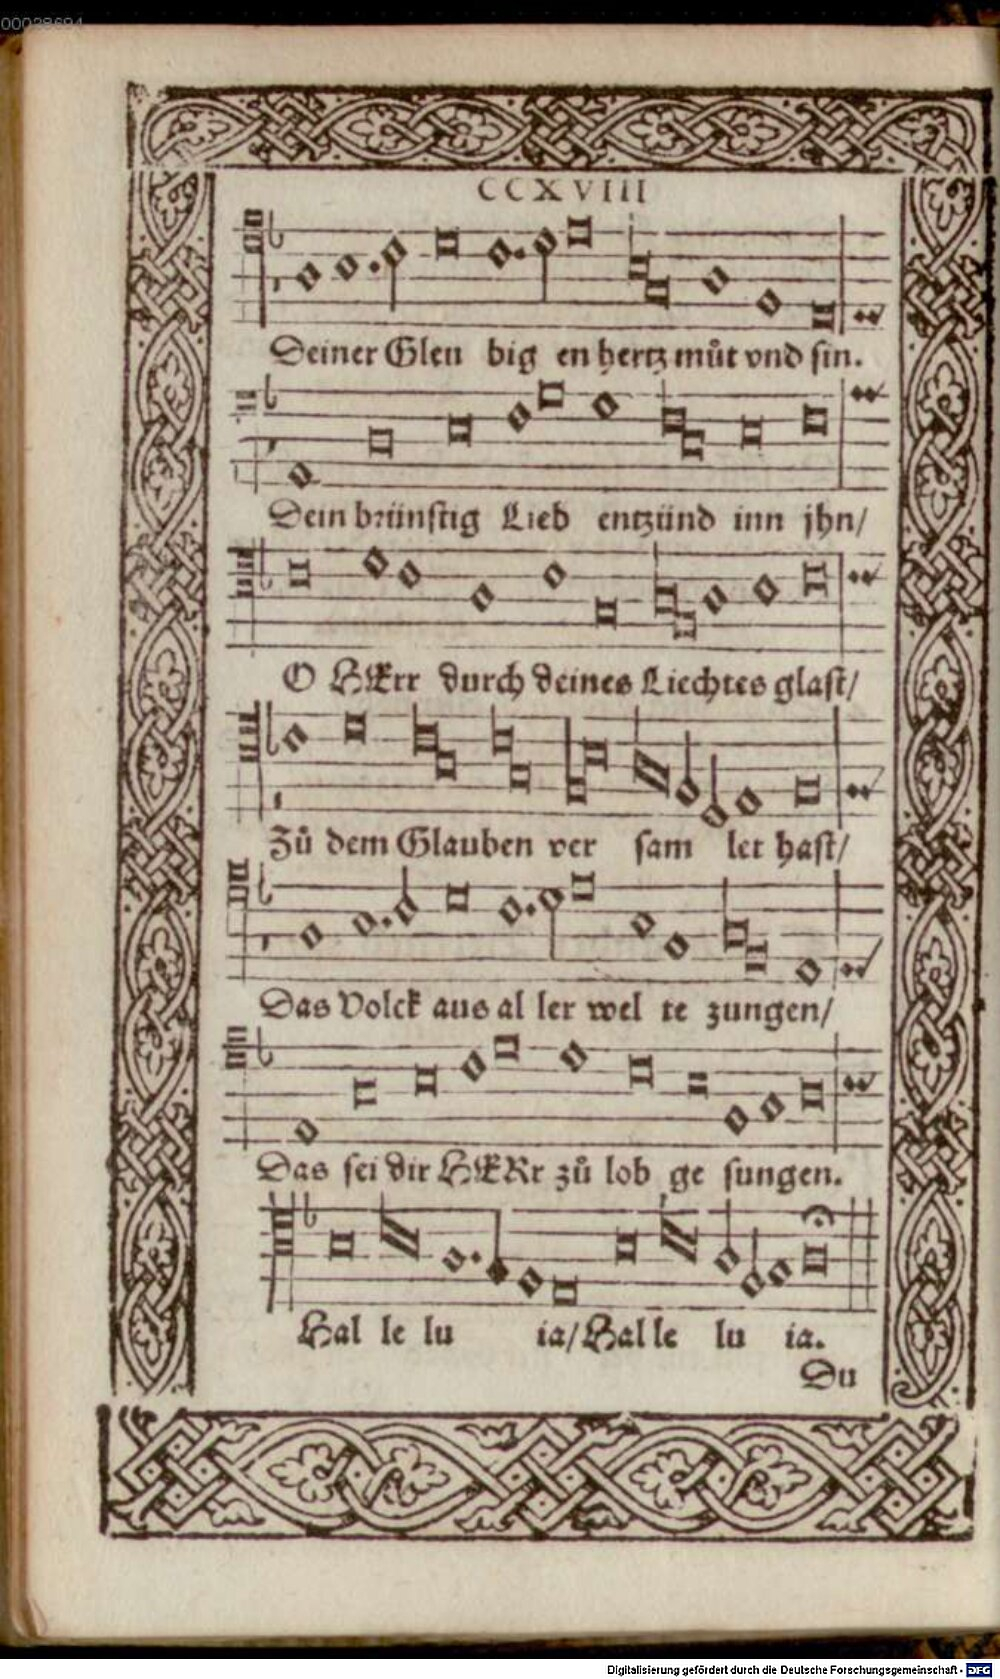 00028694
CCXVIII
Deiner Gleu big en hertz můt vnd sin.
Dein brünstig Lieb entzünd inn jhn/
O HErr durch deines Liechtes glast/
Zů dem Glauben ver sam let hast/
Das Volck aus al ler wel te zungen/
Das sei dir HERr zů lob ge sungen.
Hal le lu ia/ Hal le lu ia.
Du
Digitalisierung gefördert durch die Deutsche Forschungsgemeinschaft - DFG